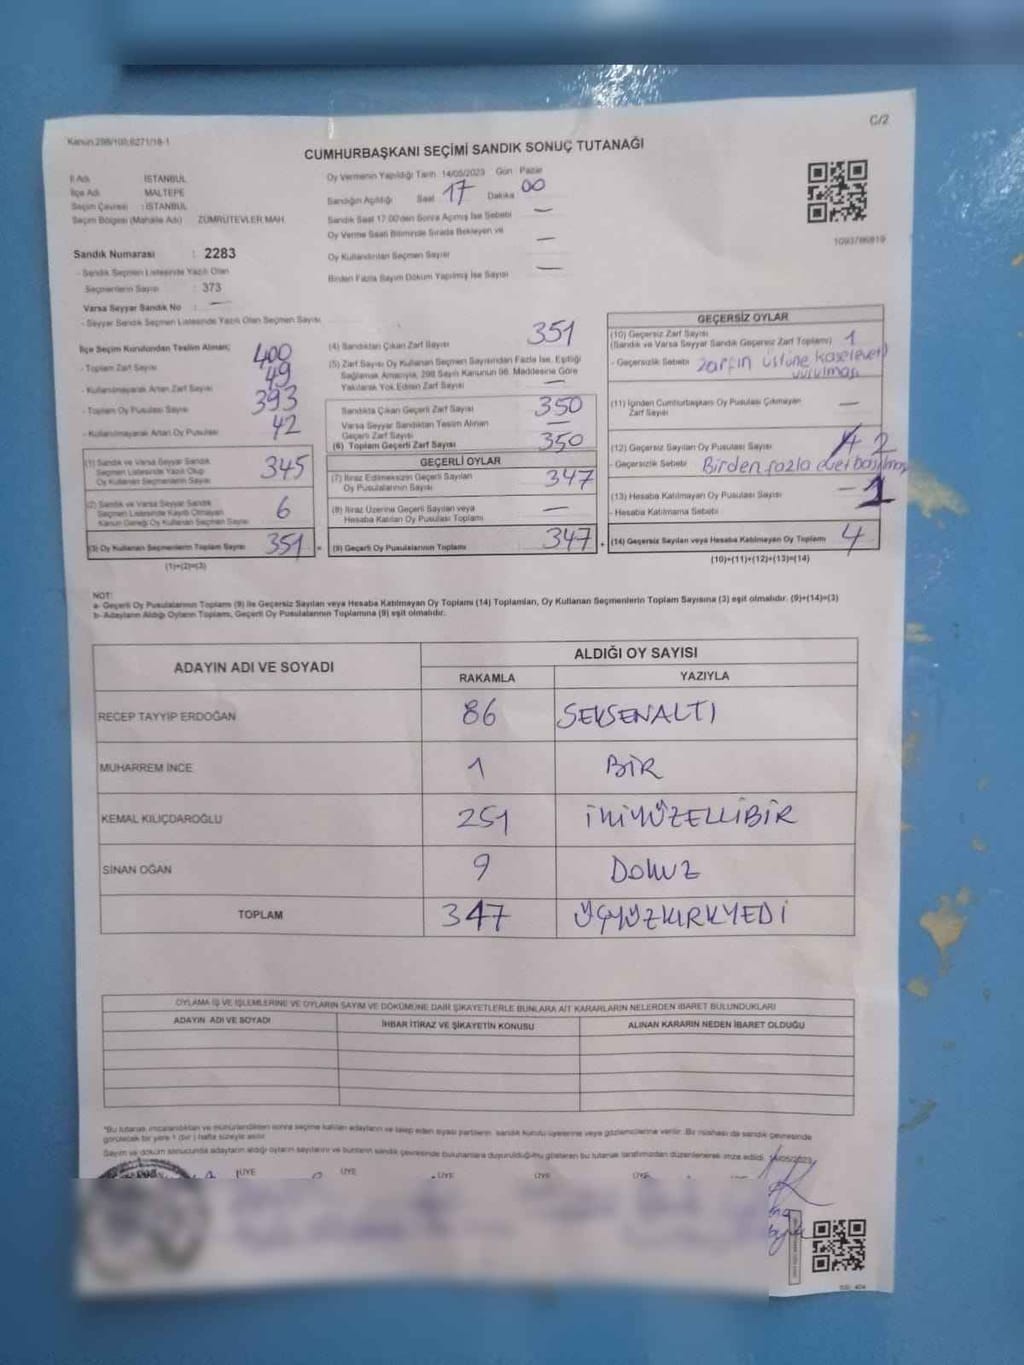 C/2
Kanun:298/103,6271/18-1
CUMHURBAŞKANI SEÇİMİ SANDIK SONUÇ TUTANAĞI
İl Adı : İSTANBUL
İlçe Adı : MALTEPE
Seçim Çevresi : İSTANBUL
Seçim Bölgesi (Mahalle Adı) : ZÜMRÜTEVLER MAH.
Sandık Numarası : 2283
- Sandık Seçmen Listesinde Yazılı Olan
Seçmenlerin Sayısı : 373
Varsa Seyyar Sandık No : —
- Seyyar Sandık Seçmen Listesinde Yazılı Olan Seçmen Sayısı:
Oy Vermenin Yapıldığı Tarih : 14/05/2023 Gün : Pazar
Sandığın Açıldığı : Saat 17 Dakika 00
Sandık Saat 17:00'den Sonra Açılmış İse Sebebi —
Oy Verme Saati Bitiminde Sırada Bekleyen ve
Oy Kullandırılan Seçmen Sayısı —
Birden Fazla Sayım Döküm Yapılmış İse Sayısı —
1093786819
İlçe Seçim Kurulundan Teslim Alınan;
- Toplam Zarf Sayısı 400
- Kullanılmayarak Artan Zarf Sayısı 49
- Toplam Oy Pusulası Sayısı 393
- Kullanılmayarak Artan Oy Pusulası 42
(1) Sandık ve Varsa Seyyar Sandık
Seçmen Listesinde Yazılı Olup
Oy Kullanan Seçmenlerin Sayısı 345
(2) Sandık ve Varsa Seyyar Sandık
Seçmen Listesinde Kayıtlı Olmayan
Kanun Gereği Oy Kullanan Seçmen Sayısı 6
(3) Oy Kullanan Seçmenlerin Toplam Sayısı 351 =
(1)+(2)=(3)
(4) Sandıktan Çıkan Zarf Sayısı 351
(5) Zarf Sayısı Oy Kullanan Seçmen Sayısından Fazla İse, Eşitliği
Sağlamak Amacıyla, 298 Sayılı Kanunun 98. Maddesine Göre
Yakılarak Yok Edilen Zarf Sayısı —
Sandıkta Çıkan Geçerli Zarf Sayısı 350
Varsa Seyyar Sandıktan Teslim Alınan
Geçerli Zarf Sayısı —
(6) Toplam Geçerli Zarf Sayısı 350
GEÇERLİ OYLAR
(7) İtiraz Edilmeksizin Geçerli Sayılan
Oy Pusulalarının Sayısı 347
(8) İtiraz Üzerine Geçerli Sayılan veya
Hesaba Katılan Oy Pusulası Toplamı —
(9) Geçerli Oy Pusulalarının Toplamı 347 +
GEÇERSİZ OYLAR
(10) Geçersiz Zarf Sayısı
(Sandık ve Varsa Seyyar Sandık Geçersiz Zarf Toplamı) 1
- Geçersizlik Sebebi : zarfın üstüne kaşe(evet)
vurulması
(11) İçinden Cumhurbaşkanı Oy Pusulası Çıkmayan
Zarf Sayısı —
(12) Geçersiz Sayılan Oy Pusulası Sayısı 2
- Geçersizlik Sebebi : Birden fazla evet basılmış
(13) Hesaba Katılmayan Oy Pusulası Sayısı 1
- Hesaba Katılmama Sebebi :
(14) Geçersiz Sayılan veya Hesaba Katılmayan Oy Toplamı 4
(10)+(11)+(12)+(13)=(14)
NOT:
a- Geçerli Oy Pusulalarının Toplamı (9) ile Geçersiz Sayılan veya Hesaba Katılmayan Oy Toplamı (14) Toplamları, Oy Kullanan Seçmenlerin Toplam Sayısına (3) eşit olmalıdır. (9)+(14)=(3)
b- Adayların Aldığı Oyların Toplamı, Geçerli Oy Pusulalarının Toplamına (9) eşit olmalıdır.
ADAYIN ADI VE SOYADI
ALDIĞI OY SAYISI
RAKAMLA YAZIYLA
RECEP TAYYİP ERDOĞAN 86 SEKSENALTI
MUHARREM İNCE 1 BİR
KEMAL KILIÇDAROĞLU 251 İKİYÜZELLİBİR
SİNAN OĞAN 9 DOKUZ
TOPLAM 347 ÜÇYÜZKIRKYEDİ
OYLAMA İŞ VE İŞLEMLERİNE VE OYLARIN SAYIM VE DÖKÜMÜNE DAİR ŞİKAYETLERLE BUNLARA AİT KARARLARIN NELERDEN İBARET BULUNDUKLARI
ADAYIN ADI VE SOYADI İHBAR İTİRAZ VE ŞİKAYETİN KONUSU ALINAN KARARIN NEDEN İBARET OLDUĞU
*Bu tutanak, imzalandıktan ve mühürlendikten sonra seçime katılan adayların ve talep eden siyasi partilerin, sandık kurulu üyelerine veya gözlemcilerine verilir. Bu nüshası da sandık çevresinde
görülecek bir yere 1 (bir) hafta süreyle asılır.
Sayım ve döküm sonucunda adayların aldığı oyların sayılarını ve bunların sandık çevresinde bulunanlara duyurulduğunu gösteren bu tutanak tarafımızdan düzenlenerek imza edildi. 14/05/2023
ÜYE ÜYE ÜYE ÜYE ÜYE